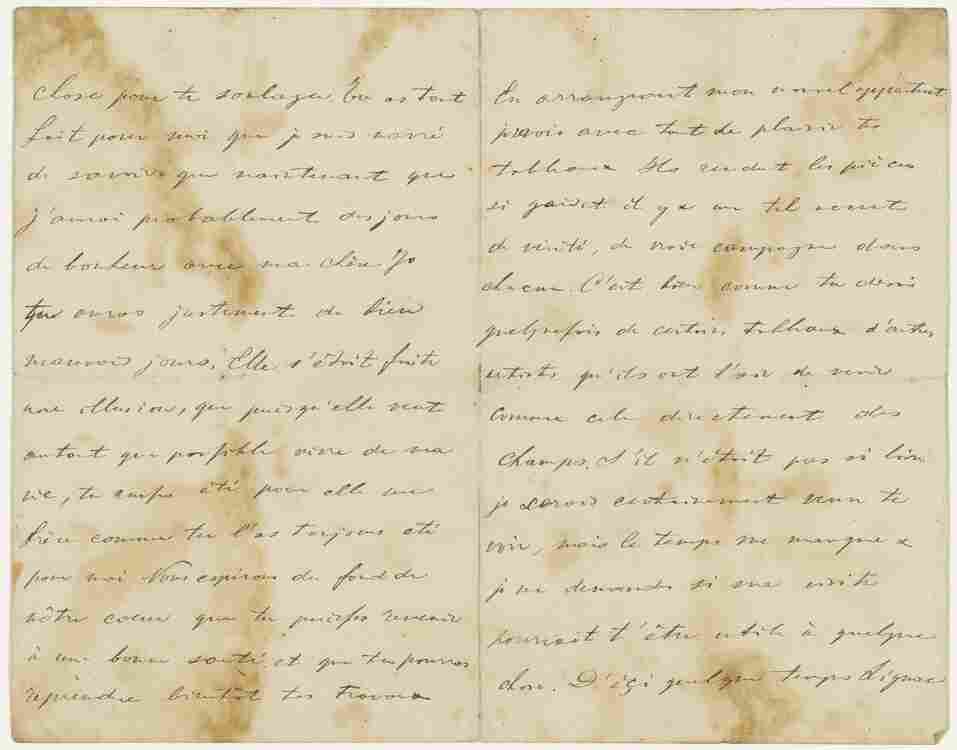 chose pour te soulager. Tu as tant
fait pour moi que je suis navré
de savoir que maintenant que
j'aurai probablement des jours
de bonheur avec ma chère Jo
tu auras justement de bien
mauvais jours. Elle s'était faite
une illusion, que puisqu'elle veut
autant que possible vivre de ma
vie, tu eusses été pour elle un
frère comme tu l'as toujours été
pour moi Nous espérons du fond de
nôtre coeur que tu puisses revenir
à une bonne santé et que tu pourras
reprendre bientôt tes travaux
En arrangeant mon nouvel appartement
je vois avec tant de plaisir tes
tableaux Ils rendent les pièces
si gaies et il y a un tel accent
de vérité, de vraie campagne dans
chacun. C'est bien comme tu disais
quelquefois de certains tableaux d'autres
artistes qu'ils ont l'air de venir
comme cela directement des
champs. S'il n'était pas si loin
je serais certainement venu te
voir, mais le temps me manque &
je me demande si ma visite
pourrait t'être utile à quelque
chose. D'ici quelque temps Signac